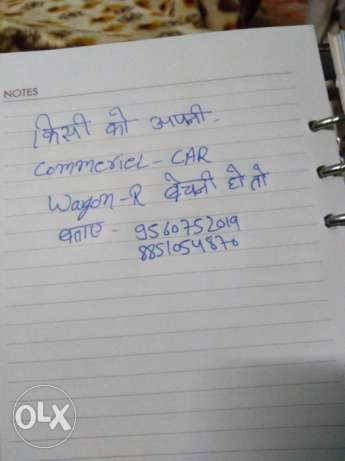 NOTES
किसी को अपनी -
Commeriel - CAR
Wagon-R बेचनी हो तो
बताए - 9560752019
8851054870
OLX